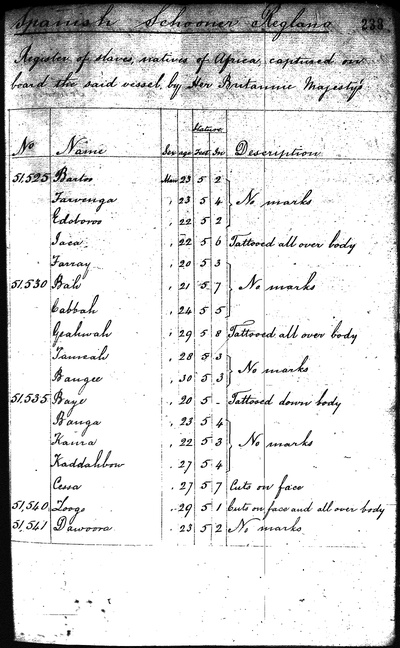 Spanish Schooner Keglana 238
Register of slaves, natives of Africa, captured on
board the said vessel by Her Britannic Majesty's
Stature
No Name Sex age Feet In Description
51,525 Bartos Man 23 5 2
Farvenga " 23 5 4 No marks
Edoboroo " 22 5 2
Jaca " 22 5 6 Tattooed all over body
Farray " 20 5 3
51,530 Bah " 21 5 7 No marks
Cabbah " 24 5 5
Geahwah " 29 5 8 Tattooed all over body
Tanneah " 28 5 3
Bangee " 30 5 3 No marks
51,535 Baye " 20 5 - Tattooed down body
Banga " 23 5 4
Kanra " 22 5 3 No marks
Kaddahbow " 27 5 4
Cessa " 27 5 7 Cuts on face
51,540 Zoogo " 29 5 1 Cuts on face and all over body
51,541 Dawoora " 23 5 2 No marks